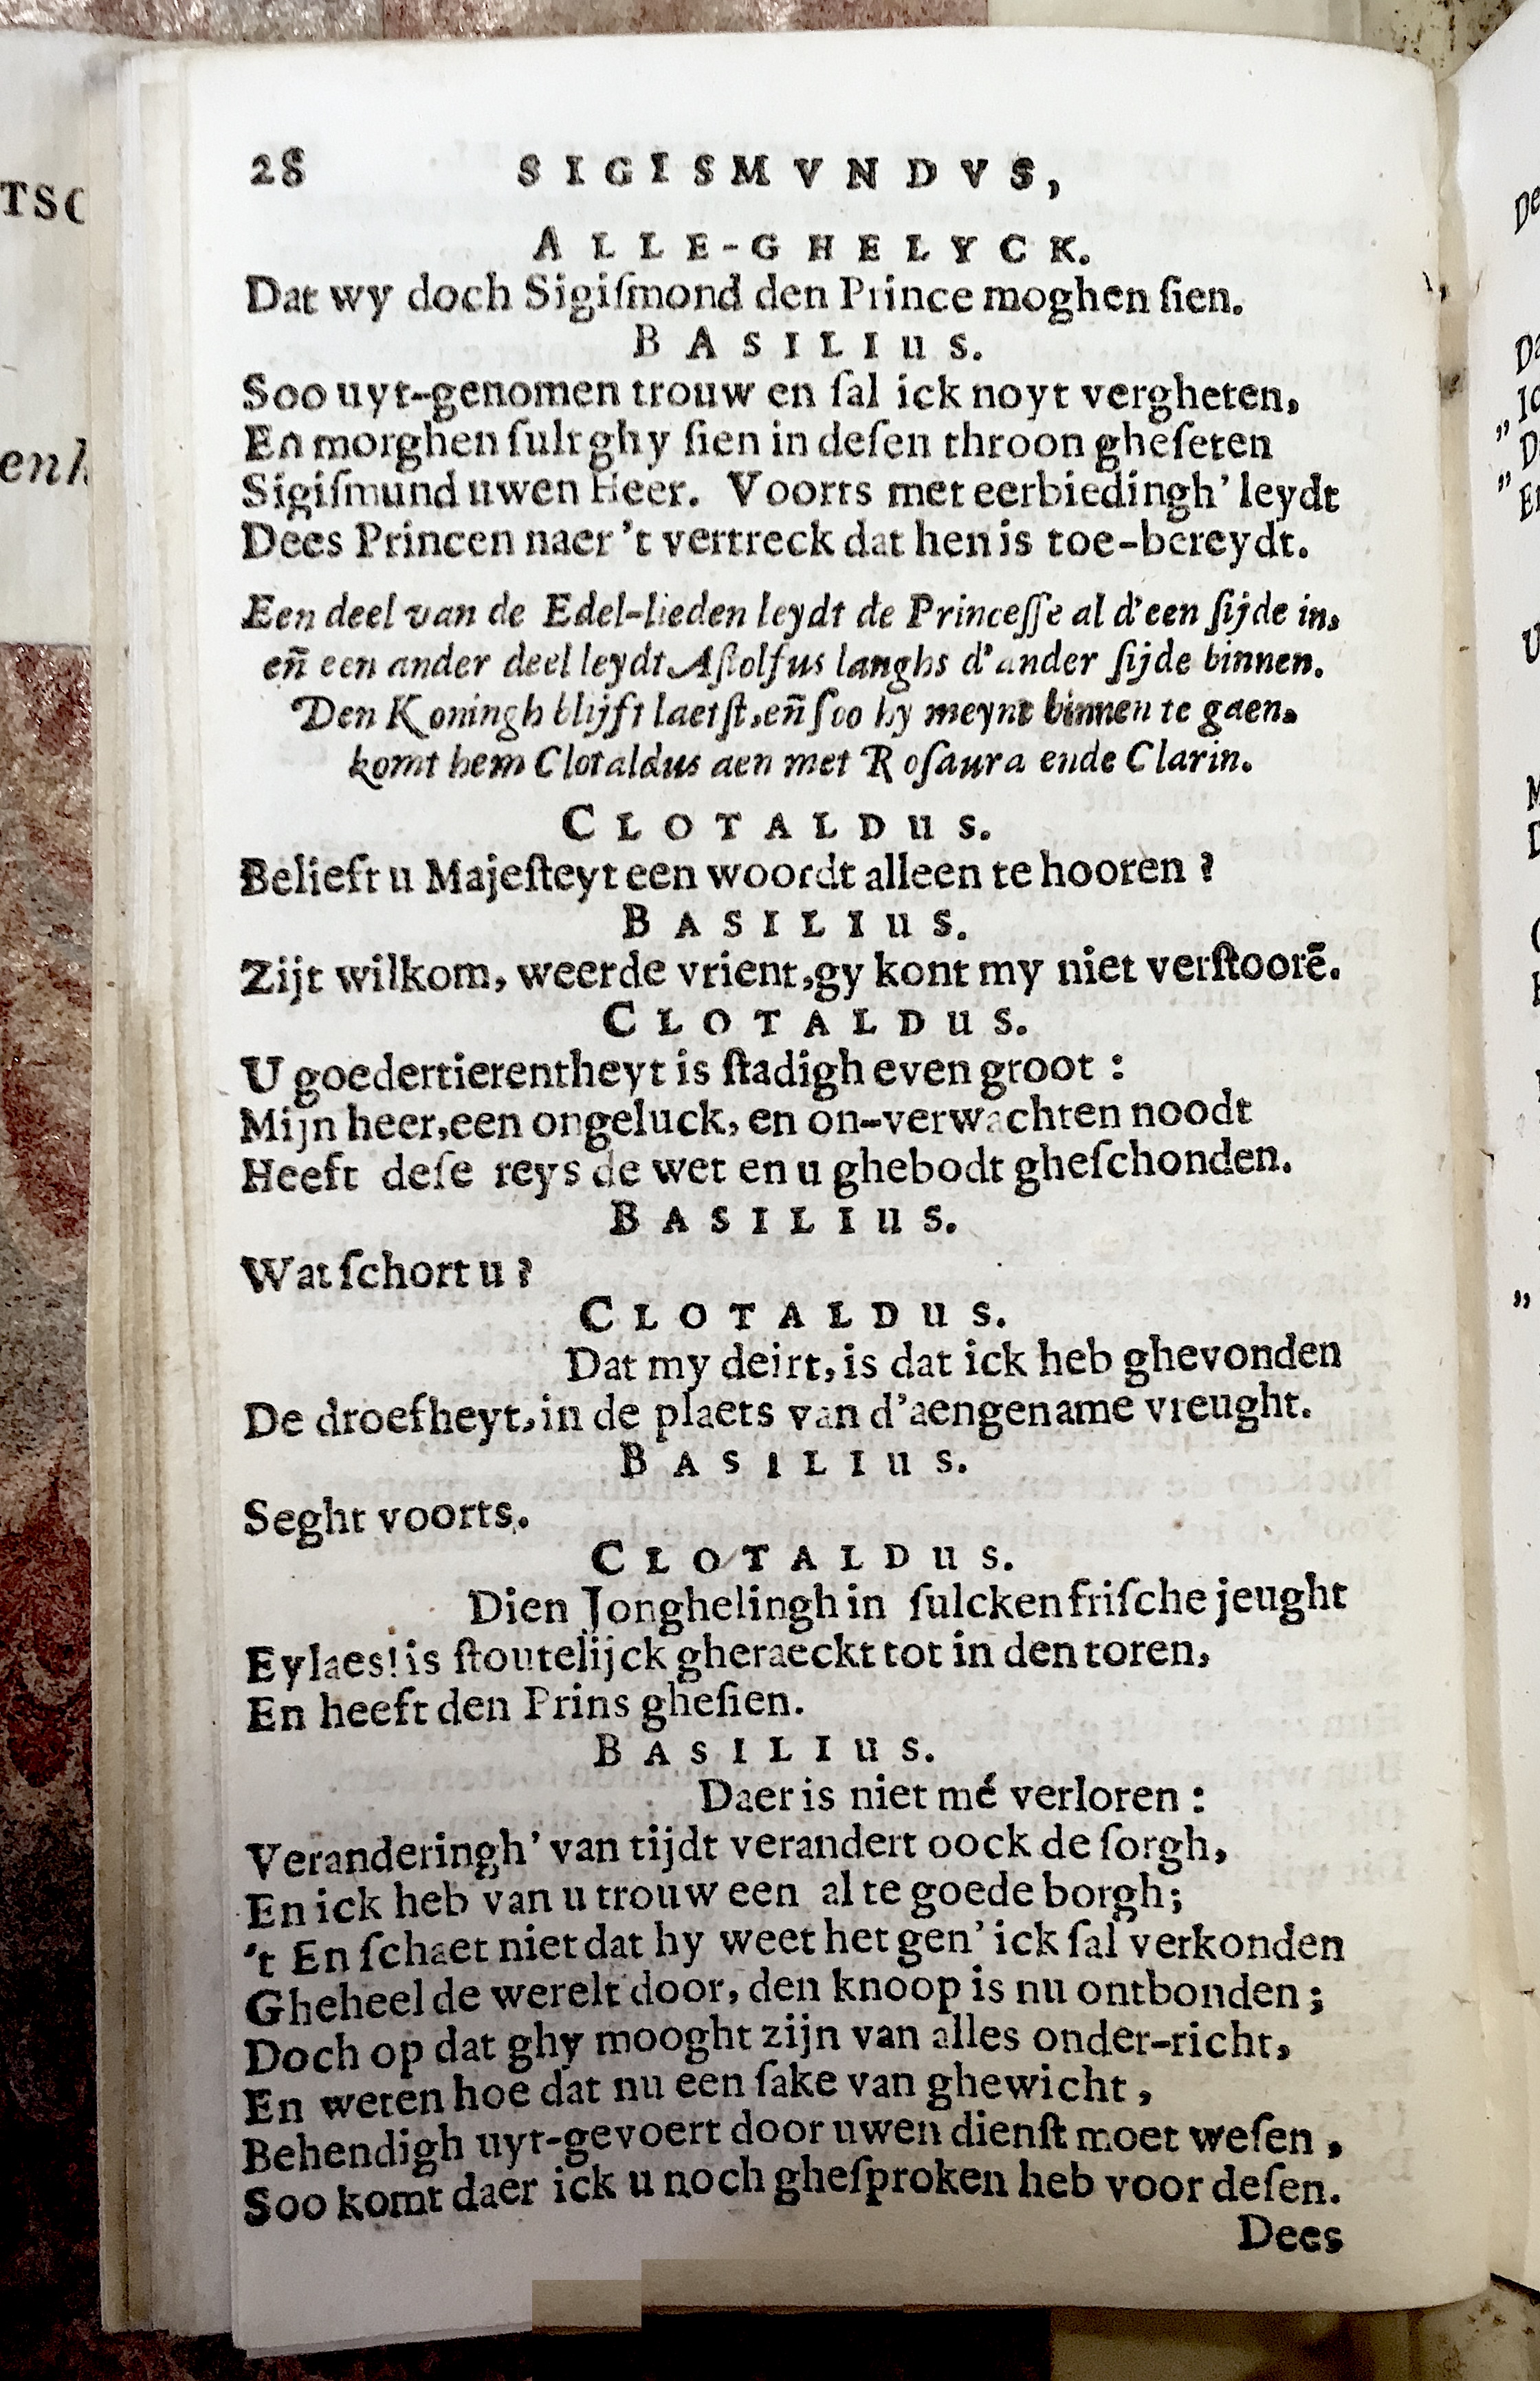 28 SIGISMVNDVS,
ALLE-GHELYCK.
Dat wy doch Sigiſmond den Prince moghen ſien.
BASILIuS.
Soo uyt-genomen trouw en ſal ick noyt vergheten,
En morghen ſult ghy ſien in deſen throon gheſeten
Sigiſmund uwen Heer. Voorts met eerbiedingh' leydt
Dees Princen naer 't vertreck dat hen is toe-bereydt.
Een deel van de Edel-lieden leydt de Princeſſe al d'een ſijde in,
en̄ een ander deel leydt Aſtolfus langhs d'ander ſijde binnen.
Den Koningh blijft laetſt, en̄ ſoo hy meynt binnen te gaen,
komt hem Clotaldus aen met Roſaura ende Clarin.
CLOTALDuS.
Belieft u Majeſteyt een woordt alleen te hooren?
BASILIuS.
Zijt wilkom, weerde vrient, gy kont my niet verſtoorē.
CLOTALDuS.
U goedertierentheyt is ſtadigh even groot:
Mijn heer, een ongeluck, en on-verwachten noodt
Heeft deſe reys de wet en u ghebodt gheſchonden.
BASILIuS.
Wat ſchort u?
CLOTALDuS.
Dat my deirt, is dat ick heb ghevonden
De droefheyt, in de plaets van d'aengename vreught.
BASILIuS.
Seght voorts.
CLOTALDuS.
Dien Jonghelingh in ſulcken friſche jeught
Eylaes! is ſtoutelijck gheraeckt tot in den toren,
En heeft den Prins gheſien.
BASILIuS.
Daer is niet mé verloren:
Veranderingh' van tijdt verandert oock de ſorgh,
En ick heb van u trouw een al te goede borgh;
't En ſchaet niet dat hy weet het gen' ick ſal verkonden
Gheheel de werelt door, den knoop is nu ontbonden;
Doch op dat ghy mooght zijn van alles onder-richt,
En weten hoe dat nu een ſake van ghewicht,
Behendigh uyt-gevoert door uwen dienſt moet weſen,
Soo komt daer ick u noch gheſproken heb voor deſen.
Dees